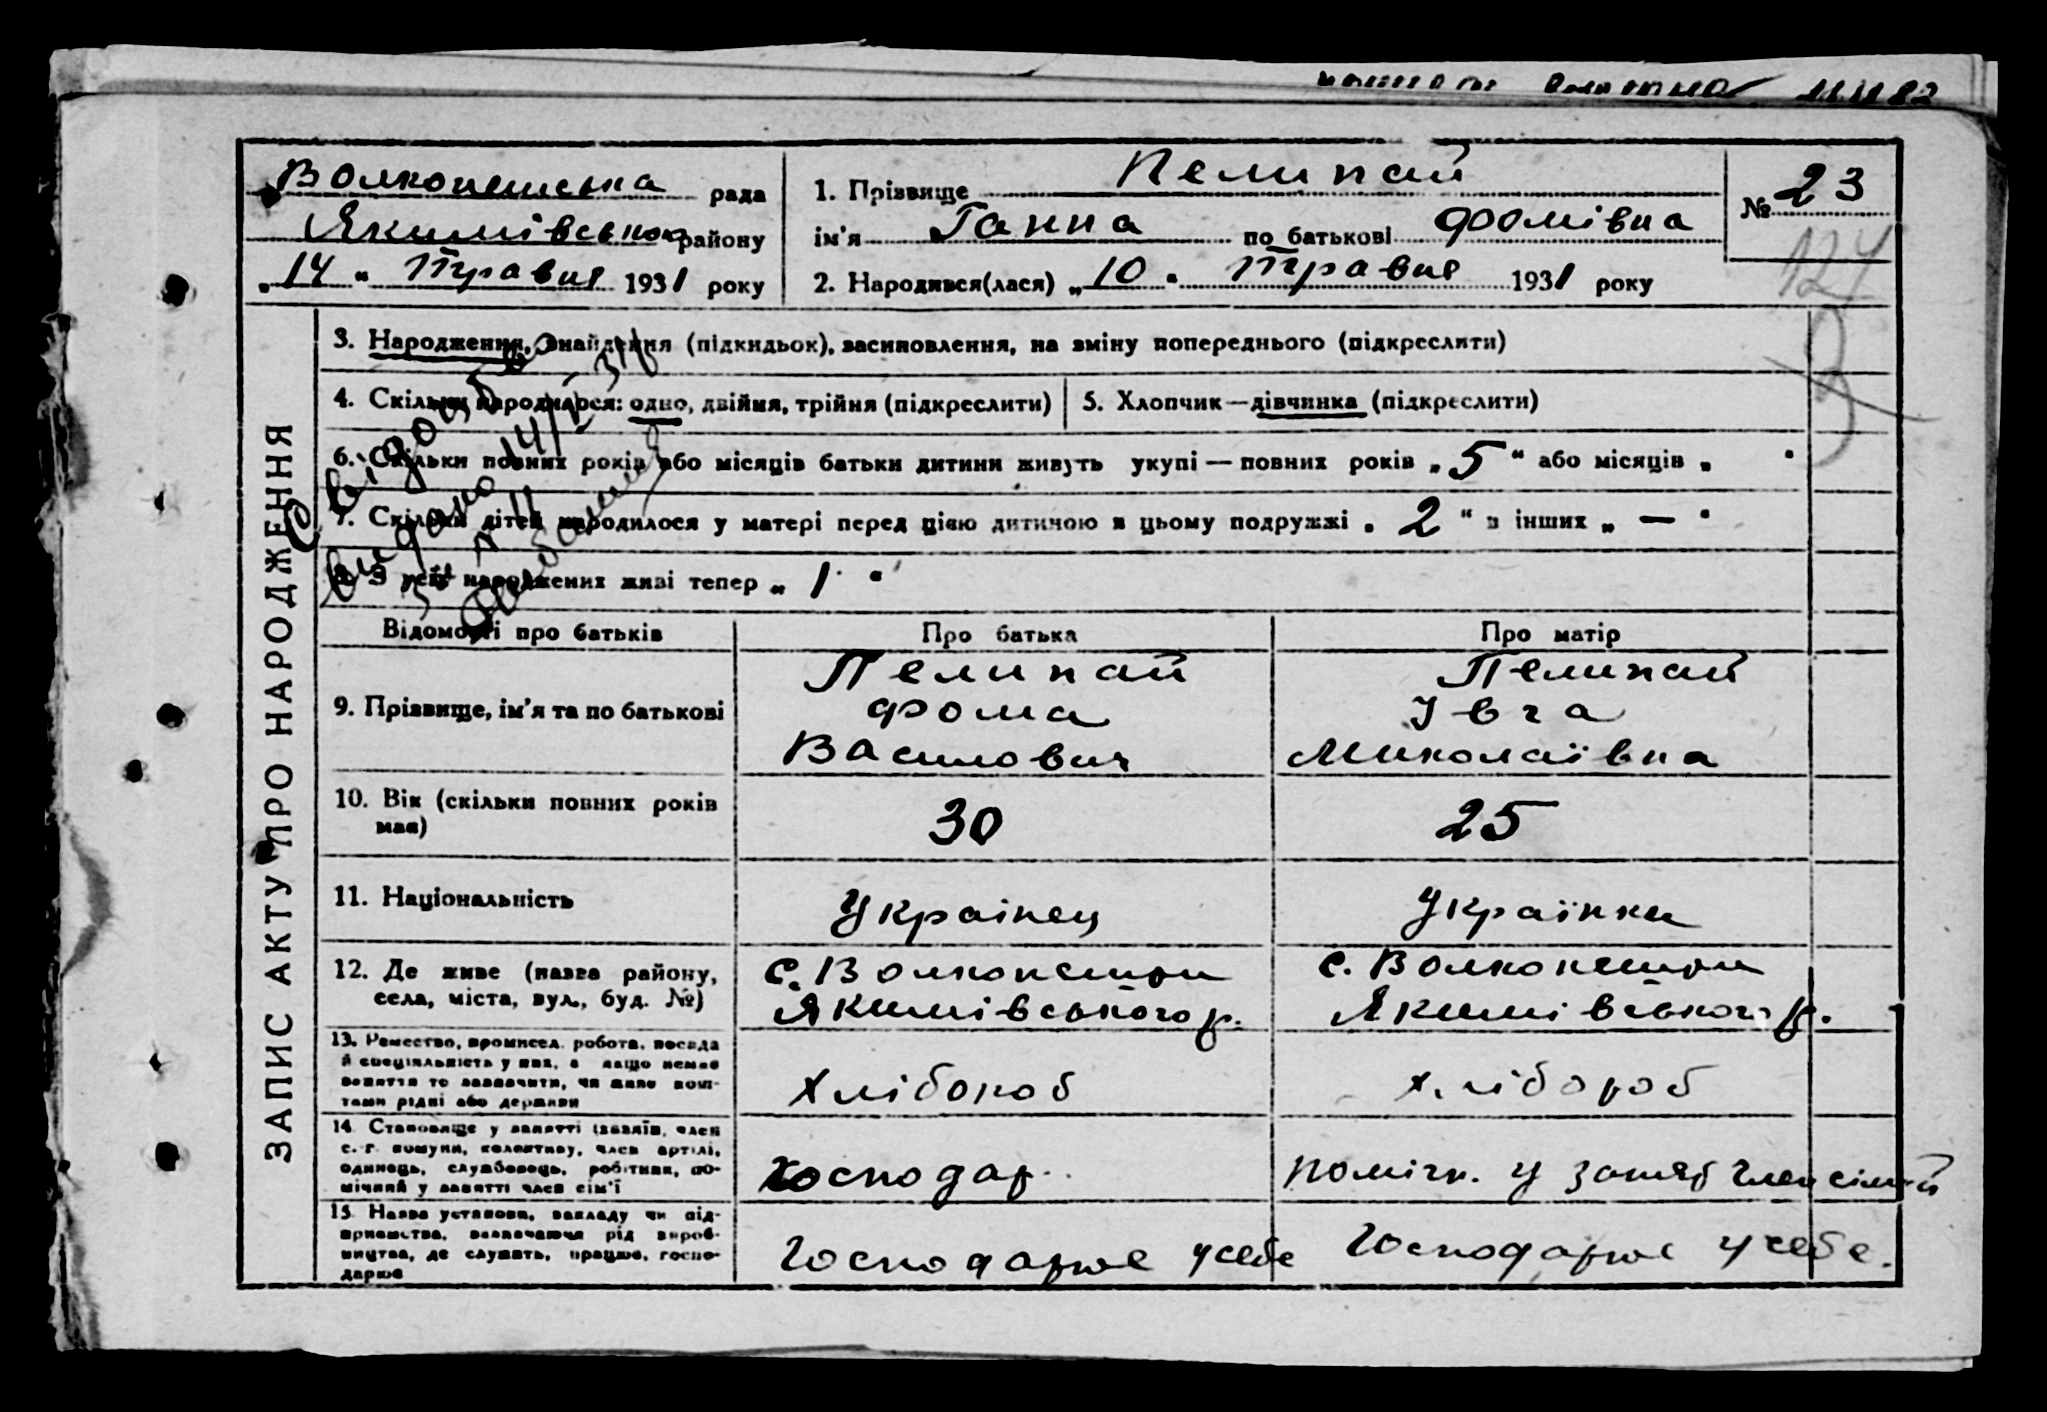 Волконешська рада
Якимівського району
„14“ Травня 1931 року
1. Прізвище Пелипай
ім'я Ганна по батькові Фомівна
2. Народився(лася) „10“ Травня 1931 року
№ 23
124
ЗАПИС АКТУ ПРО НАРОДЖЕННЯ
3. Народження, знайдення (підкидьок), засиновлення, на зміну попереднього (підкреслити)
4. Скільки народилося: одно, двійня, трійня (підкреслити)
5. Хлопчик—дівчинка (підкреслити)
6. Скільки повних років або місяців батьки дитини живуть укупі — повних років „5“ або місяців „ “
7. Скільки дітей народилося у матері перед цією дитиною в цьому подружжі „2“ в інших „—“
8. З усіх народжених живі тепер „1“
Свідоцтво
видано 14/V 31р
Відомості про батьків Про батька Про матір
9. Прізвище, ім'я та по батькові
Пелипай
Фома
Василович
Пелипай
Івга
Миколаївна
10. Вік (скільки повних років має)
30
25
11. Національність
Українець
Українка
12. Де живе (назва району, села, міста, вул., буд. №)
с. Волконешти
Якимівського р.
с. Волконешти
Якимівського р.
13. Ремество, промисел, робота, посада й спеціяльність у них, а якщо немає заняття то зазначити, чи живе коштами рідні або держави
Хлібороб
хлібороб
14. Становище у занятті (хазяїн, член с.-г. комуни, колективу, член артілі, одинець, службовець, робітник, помічний у занятті член сім'ї
господар
поміч. у занят член сімьй
15. Назва установи, закладу чи підприємства, зазначаючи рід виробництва, де служить, працює, господарює
Господарює у себе
Господарює у себе.